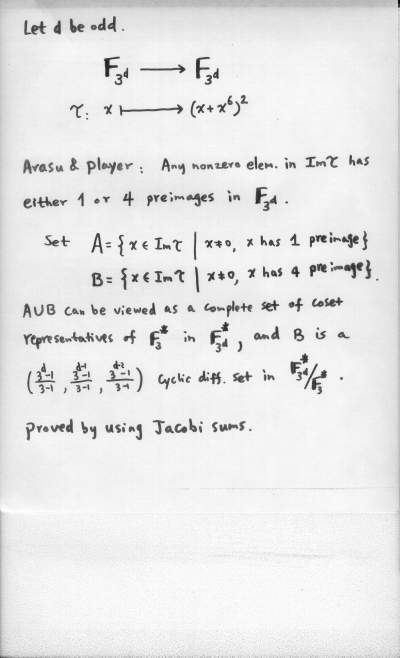 Let d be odd.
F_{3^d} ⟶ F_{3^d}
τ: x ⟼ (x+x^6)^2
Arasu & Player : Any nonzero elem. in Im τ has
either 1 or 4 preimages in F_{3^d}.
Set A = {x ∈ Im τ | x≠0, x has 1 preimage}
B = {x ∈ Im τ | x≠0, x has 4 preimage}.
A∪B can be viewed as a complete set of coset
representatives of F_3^* in F_{3^d}^*, and B is a
((3^d-1)/(3-1), (3^{d-1}-1)/(3-1), (3^{d-2}-1)/(3-1)) cyclic diff. set in F_{3^d}^*/F_3^*.
proved by using Jacobi sums.